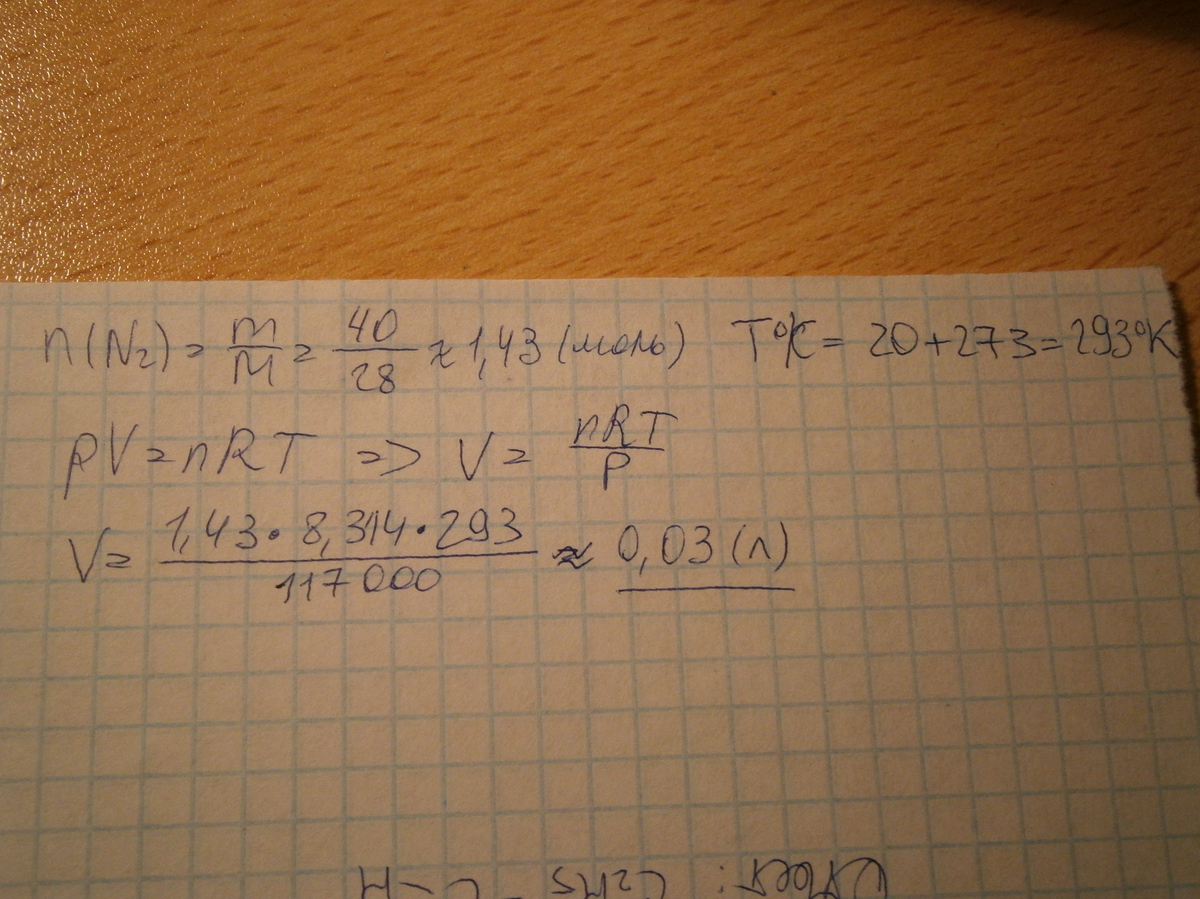 n(N₂) = m/M = 40/28 ≈ 1,43 (моль) T°K = 20+273=293°K
PV=nRT => V= nRT/P
V= 1,43·8,314·293/117000 ≈ 0,03 (л)